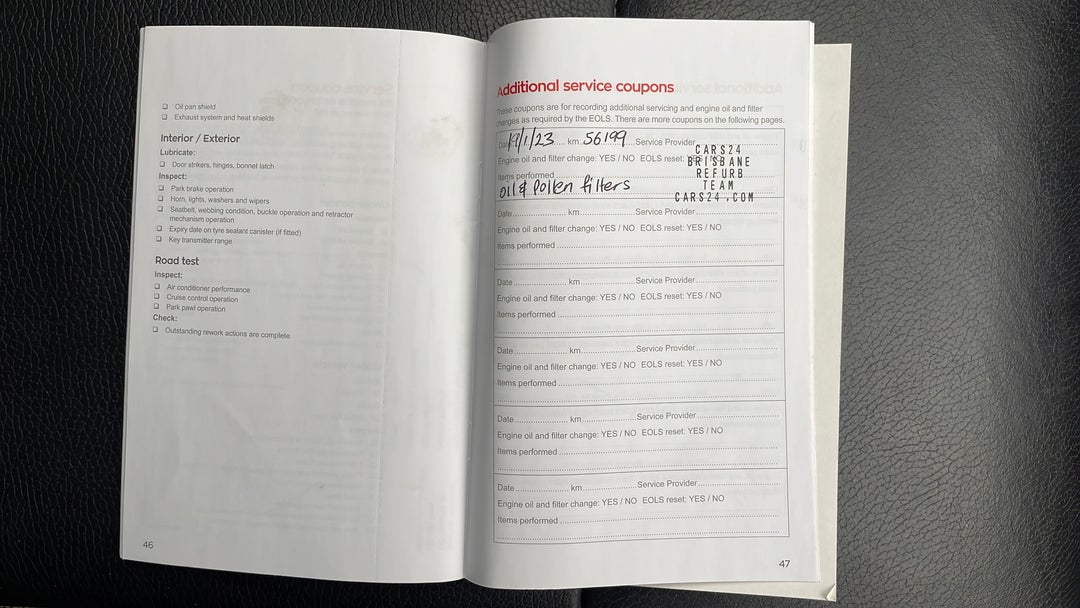 ❑ Oil pan shield
❑ Exhaust system and heat shields
Interior / Exterior
Lubricate:
❑ Door strikers, hinges, bonnet latch
Inspect:
❑ Park brake operation
❑ Horn, lights, washers and wipers
❑ Seatbelt, webbing condition, buckle operation and retractor
mechanism operation
❑ Expiry date on tyre sealant canister (if fitted)
❑ Key transmitter range
Road test
Inspect:
❑ Air conditioner performance
❑ Cruise control operation
❑ Park pawl operation
Check:
❑ Outstanding rework actions are complete
46
Additional service coupons
These coupons are for recording additional servicing and engine oil and filter
changes as required by the EOLS. There are more coupons on the following pages.
Date 19/1/23 km 56199 Service Provider
CARS24
Engine oil and filter change: YES / NO EOLS reset: YES / NO
BRISBANE
REFURB
Items performed
TEAM
Oil & Pollen filters
CARS24.COM
Date km Service Provider
Engine oil and filter change: YES / NO EOLS reset: YES / NO
Items performed
Date km Service Provider
Engine oil and filter change: YES / NO EOLS reset: YES / NO
Items performed
Date km Service Provider
Engine oil and filter change: YES / NO EOLS reset: YES / NO
Items performed
Date km Service Provider
Engine oil and filter change: YES / NO EOLS reset: YES / NO
Items performed
Date km Service Provider
Engine oil and filter change: YES / NO EOLS reset: YES / NO
Items performed
47